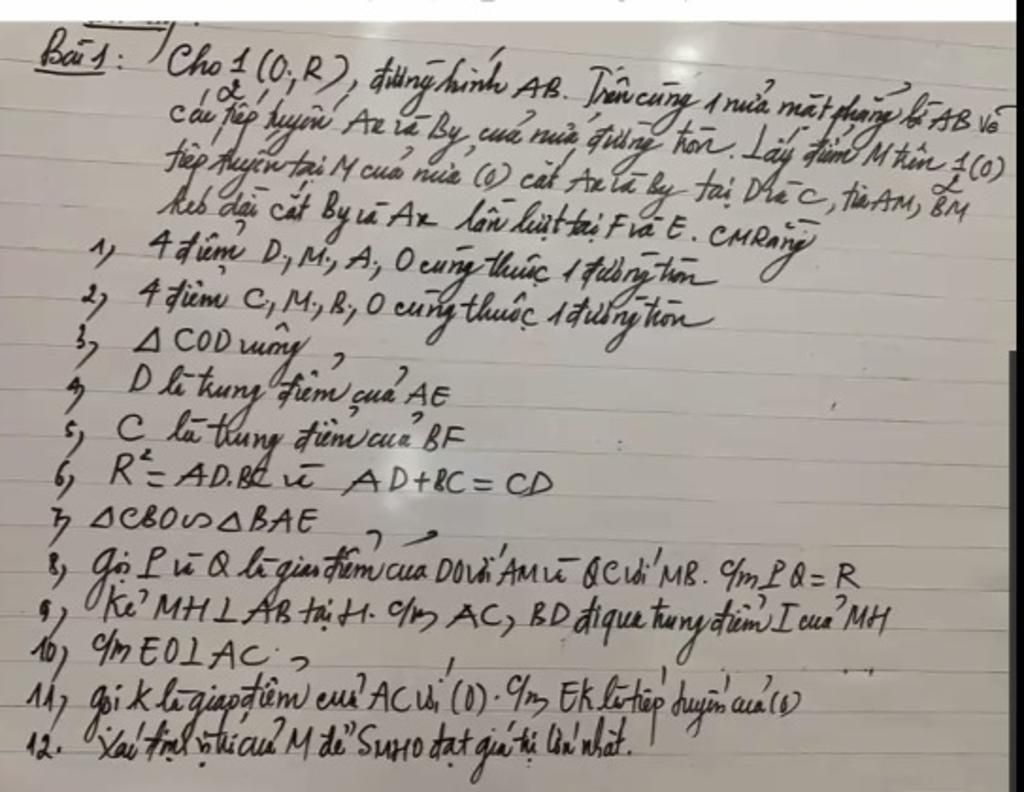 Bài 1: Cho 1/2 (O; R), đường kính AB. Trên cùng 1 nửa mặt phẳng bờ AB vẽ
các tiếp tuyến Ax và By của nửa đường tròn. Lấy điểm M trên 1/2 (O)
tiếp tuyến tại M của nửa (O) cắt Ax và By tại D và C, tia AM, BM
kéo dài cắt By và Ax lần lượt tại F và E. CMRằng
1, 4 điểm D, M, A, O cùng thuộc 1 đường tròn
2, 4 điểm C, M, B, O cùng thuộc 1 đường tròn
3, Δ COD vuông
4, D là trung điểm của AE
5, C là trung điểm của BF
6, R² = AD.BC và AD + BC = CD
7, ΔCBO ∽ ΔBAE
8, Gọi P và Q là giao điểm của DO với AM và OC với MB. C/m PQ = R
9, Kẻ MH ⊥ AB tại H. C/m AC, BD đi qua trung điểm I của MH
10, C/m EO ⊥ AC
11, gọi K là giao điểm của AC với (O). C/m EK là tiếp tuyến của (O)
12. Xác định vị trí của M để SMHO đạt giá trị lớn nhất.